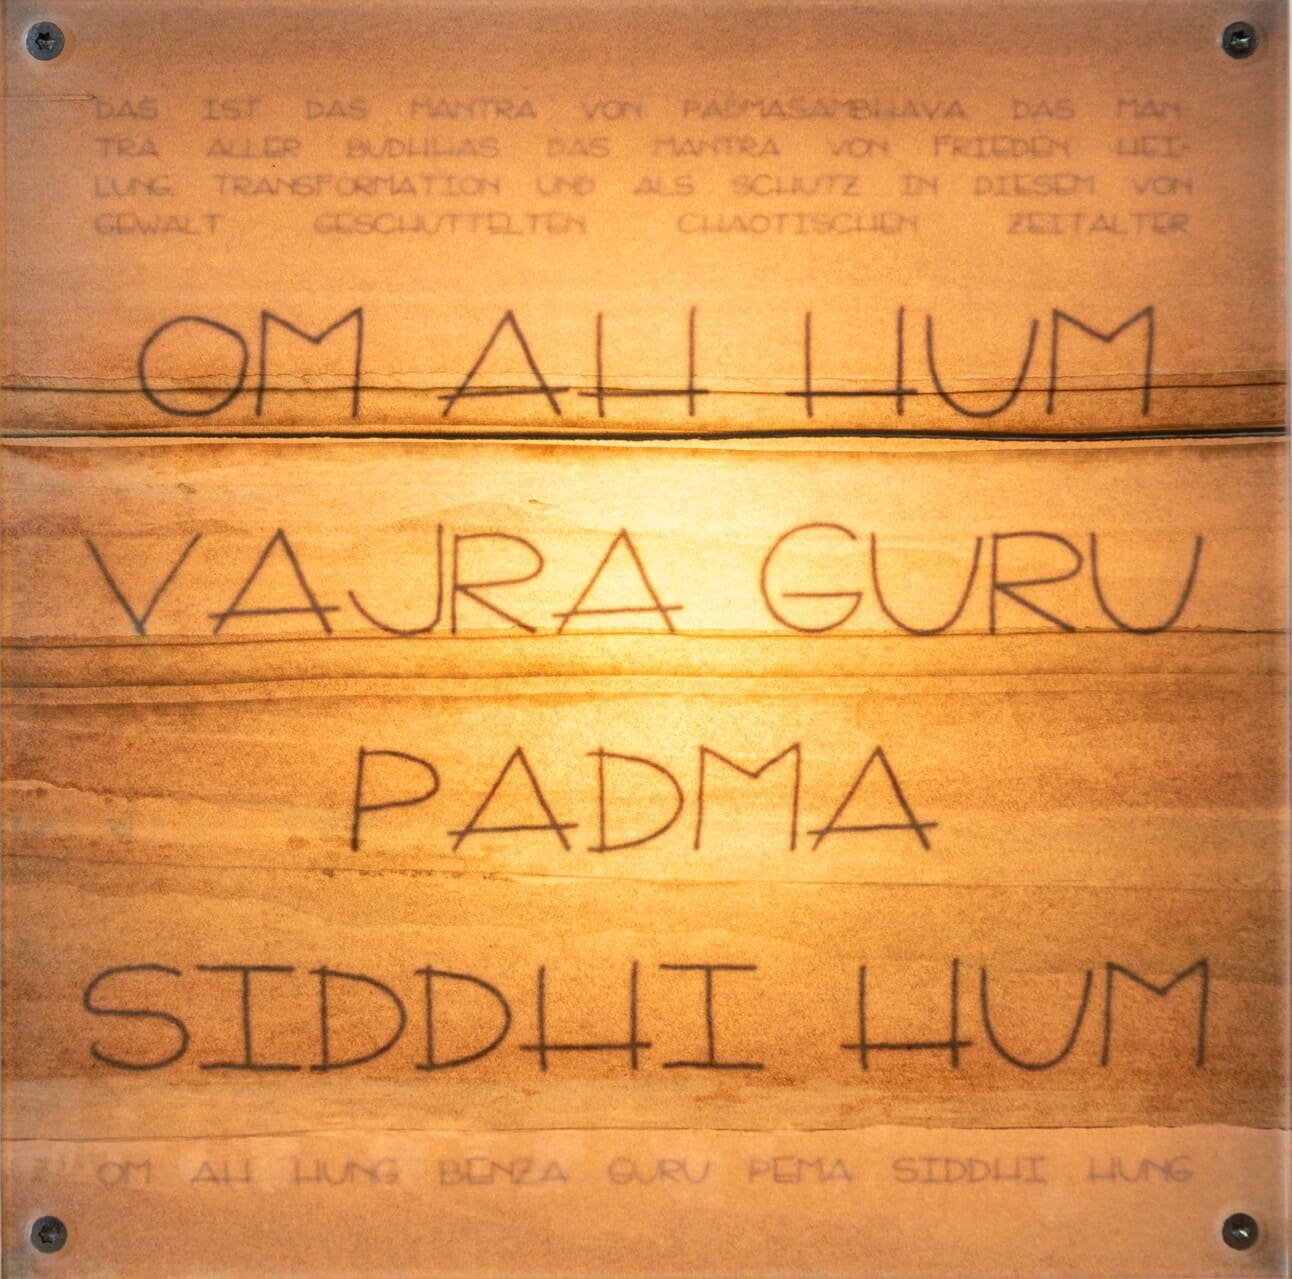 DAS IST DAS MANTRA VON PADMASAMBHAVA DAS MAN-
TRA ALLER BUDHHAS DAS MANTRA VON FRIEDEN HEI-
LUNG TRANSFORMATION UND ALS SCHUTZ IN DIESEM VON
GEWALT GESCHUTTELTEN CHAOTISCHEN ZEITALTER
OM AH HUM
VAJRA GURU
PADMA
SIDDHI HUM
OM AH HUNG BENZA GURU PEMA SIDDHI HUNG